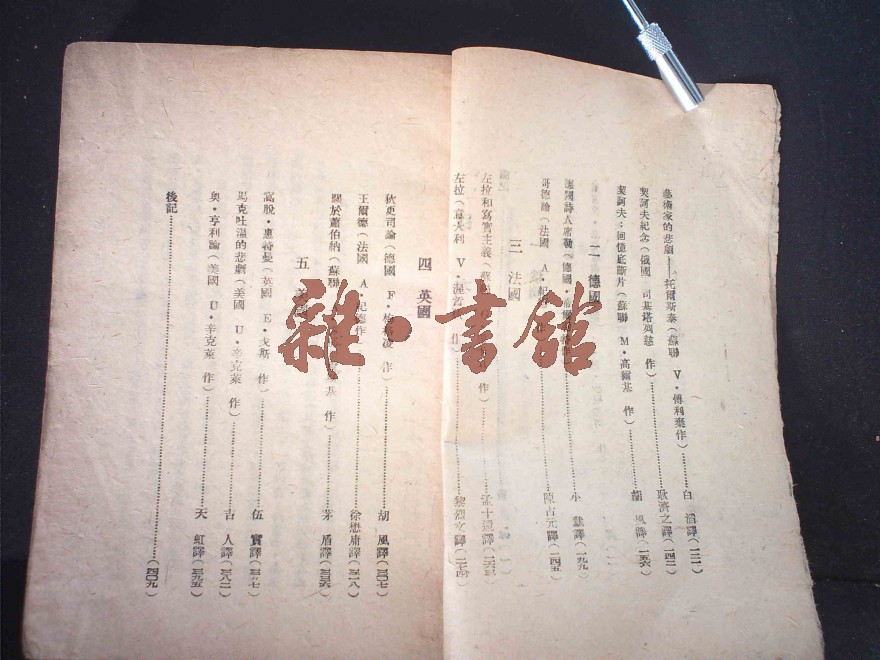 藝術家的悲劇——托爾斯泰(蘇聯 V・傅利采作)……白 澄譯(一二一)
契訶夫紀念(俄國 司基塔列慈 作)……耿濟之譯(一四二)
契訶夫:回憶底斷片(蘇聯 M・高爾基 作)……譯(一五六)
二 德國
詩人席勒(德國・……小 默譯(一九九
哥德論(法國 A・紀……陳占元譯(二四五)
三 法國
左拉和寫實主義(蘇……作)……孟十還譯(二六三)
左拉(意大利 V・……作)……黎烈文譯(二七四)
四 英國
狄更司論(德國 F・……作)……胡 風譯(三〇七)
王爾德(法國 A・紀德作)……徐懋庸譯(三一八)
關於蕭伯納(蘇聯……作)……茅 盾譯(三三六)
五 美
惠特曼(英國 E・戈斯 作)……伍 實譯
馬克吐溫的悲劇(美國 U・辛克萊 作)……吉 人譯(三八二)
奧・亨利論(美國 U・辛克萊 作)……天 虹譯(三九五)
後記……(四〇九)
雜・書館